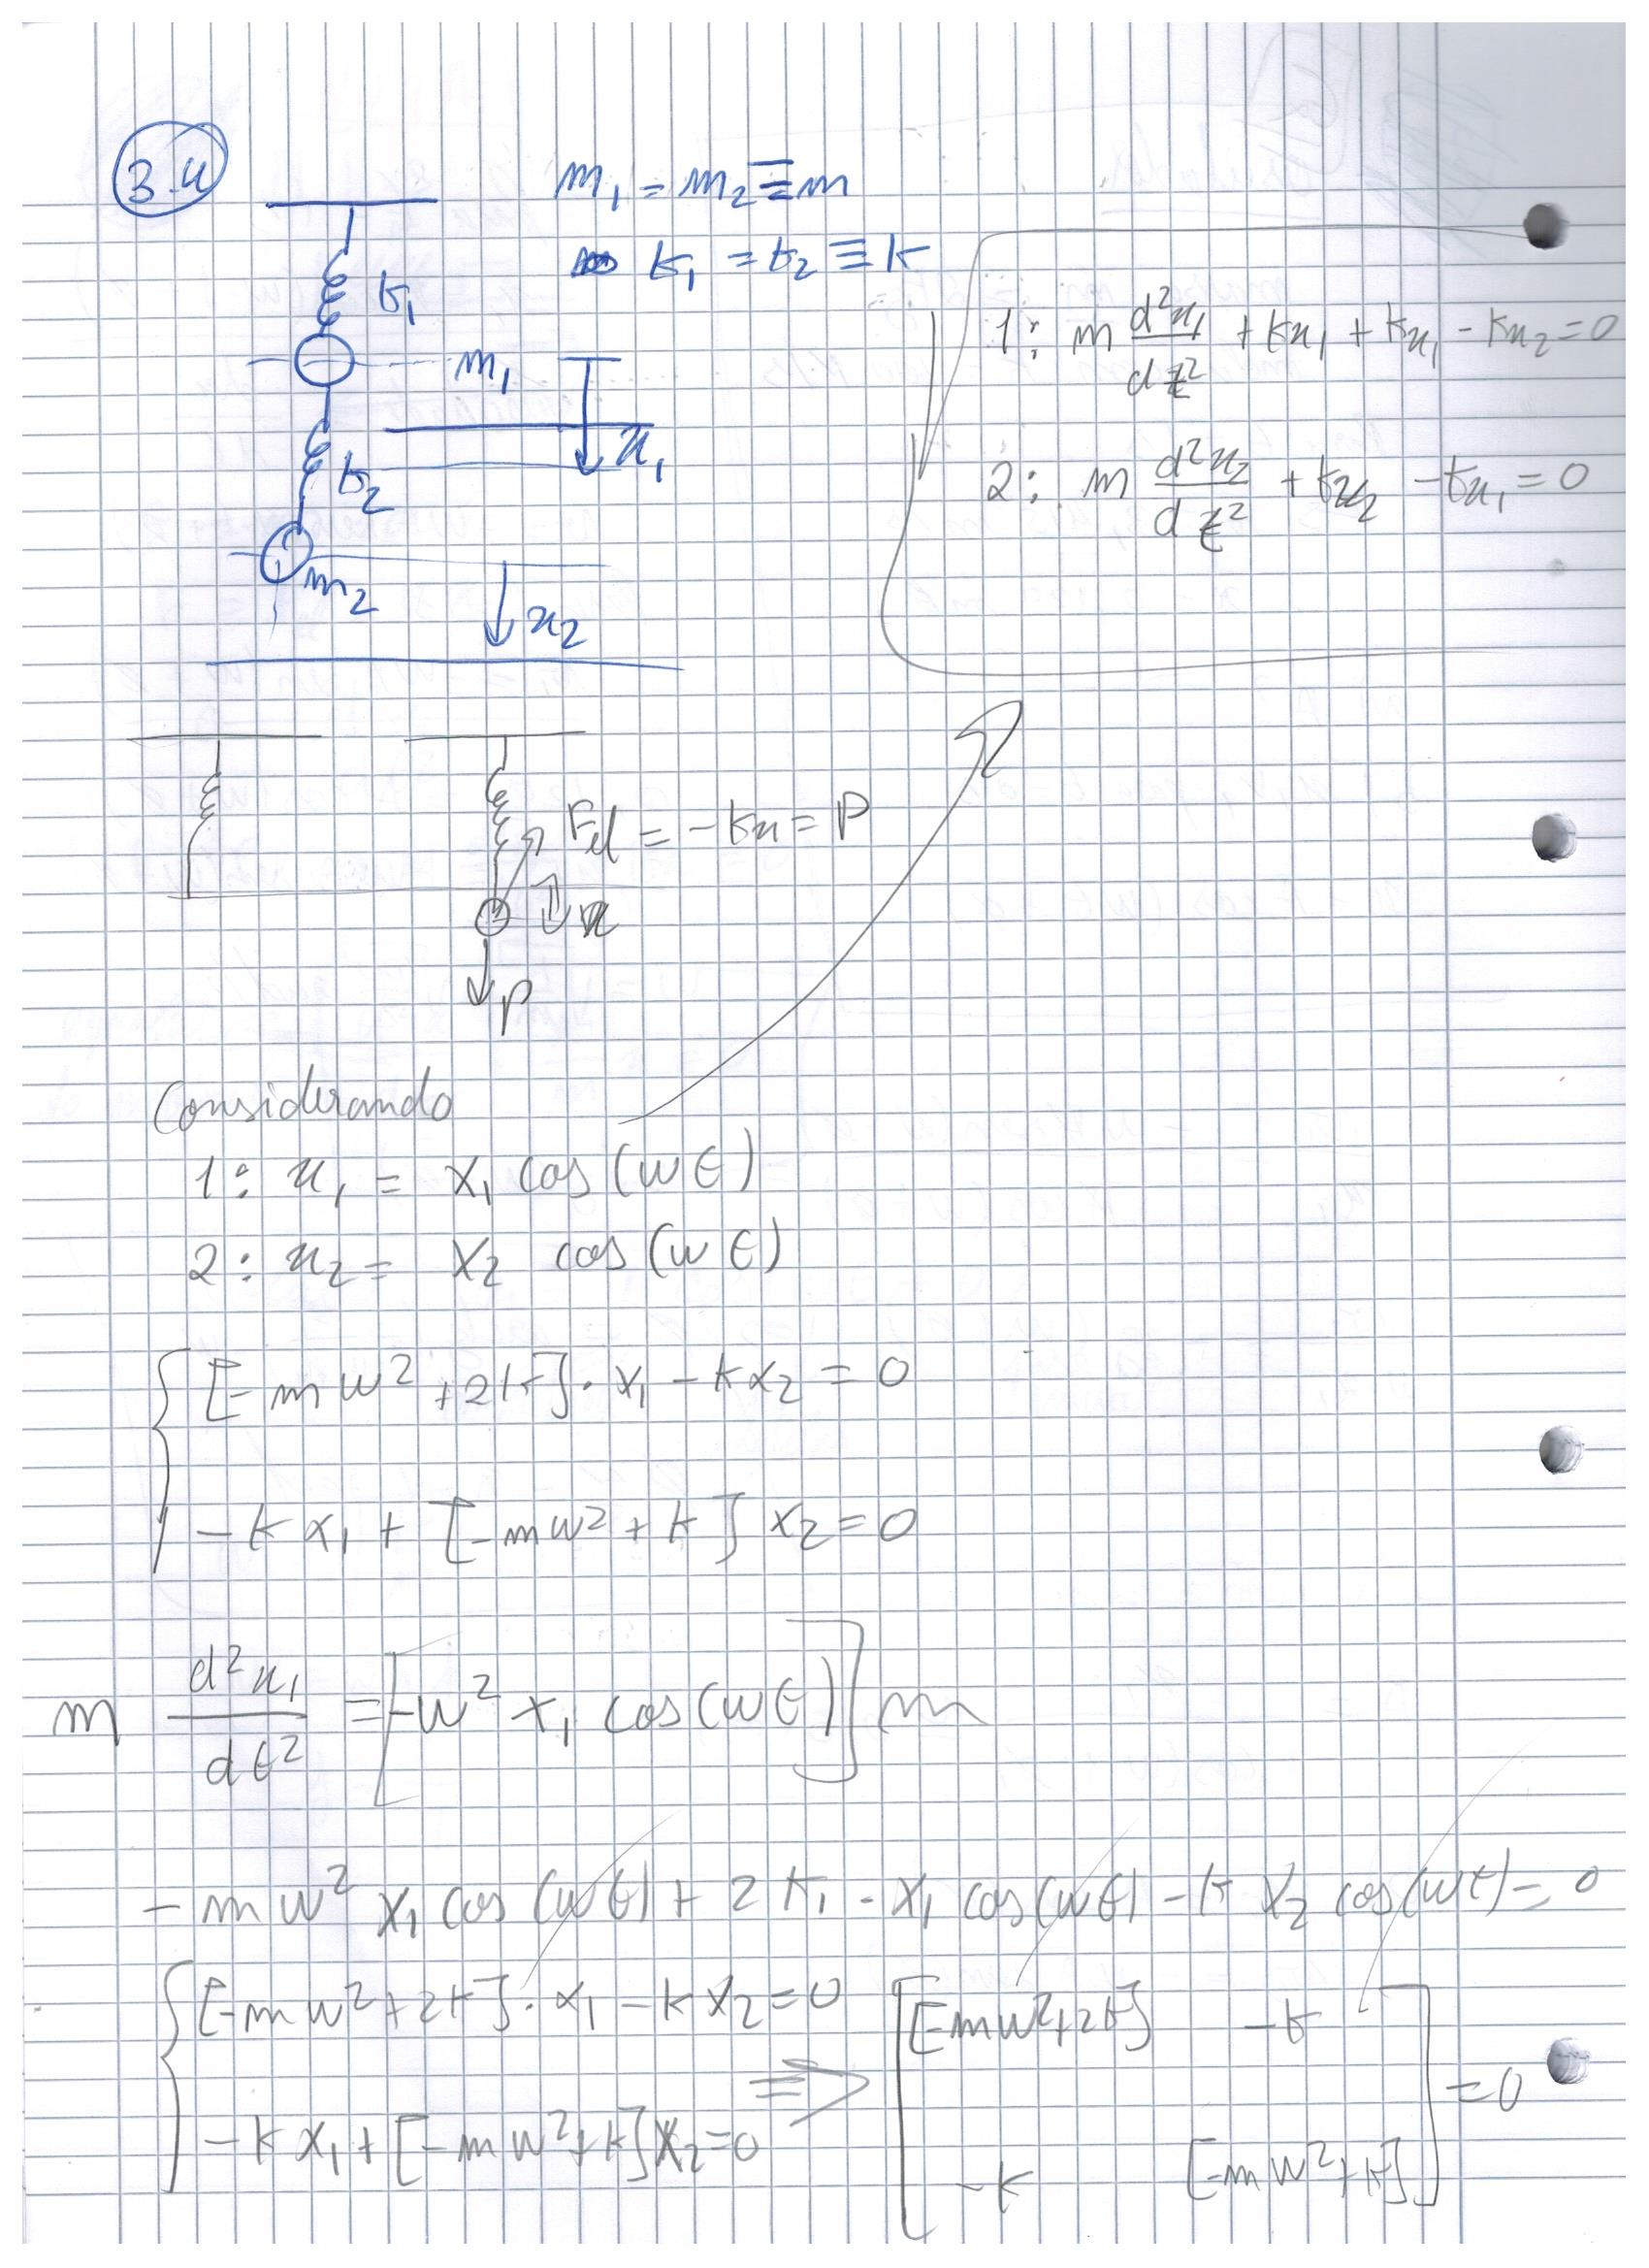 3.4
m₁ = m₂ ≡ m
k₁ = k₂ ≡ k
k₁
m₁
x₁
k₂
m₂
x₂
1: m d²x₁/dt² + kx₁ + kx₁ - kx₂ = 0
2: m d²x₂/dt² + kx₂ - kx₁ = 0
Fel = -kx = P
x
P
Considerando
1: x₁ = X₁ cos(wt)
2: x₂ = X₂ cos(wt)
[-mw² + 2k]·X₁ - kX₂ = 0
-kX₁ + [-mw² + k] X₂ = 0
m d²x₁/dt² = [-w² X₁ cos(wt)] m
-mw² X₁ cos(wt) + 2k₁ · X₁ cos(wt) - k X₂ cos(wt) = 0
{ [-mw²+2k]·X₁ - kX₂ = 0 ⇒ [ [-mw²+2k] -k
-kX₁ + [-mw²+k]X₂ = 0 -k [-mw²+k] ] = 0